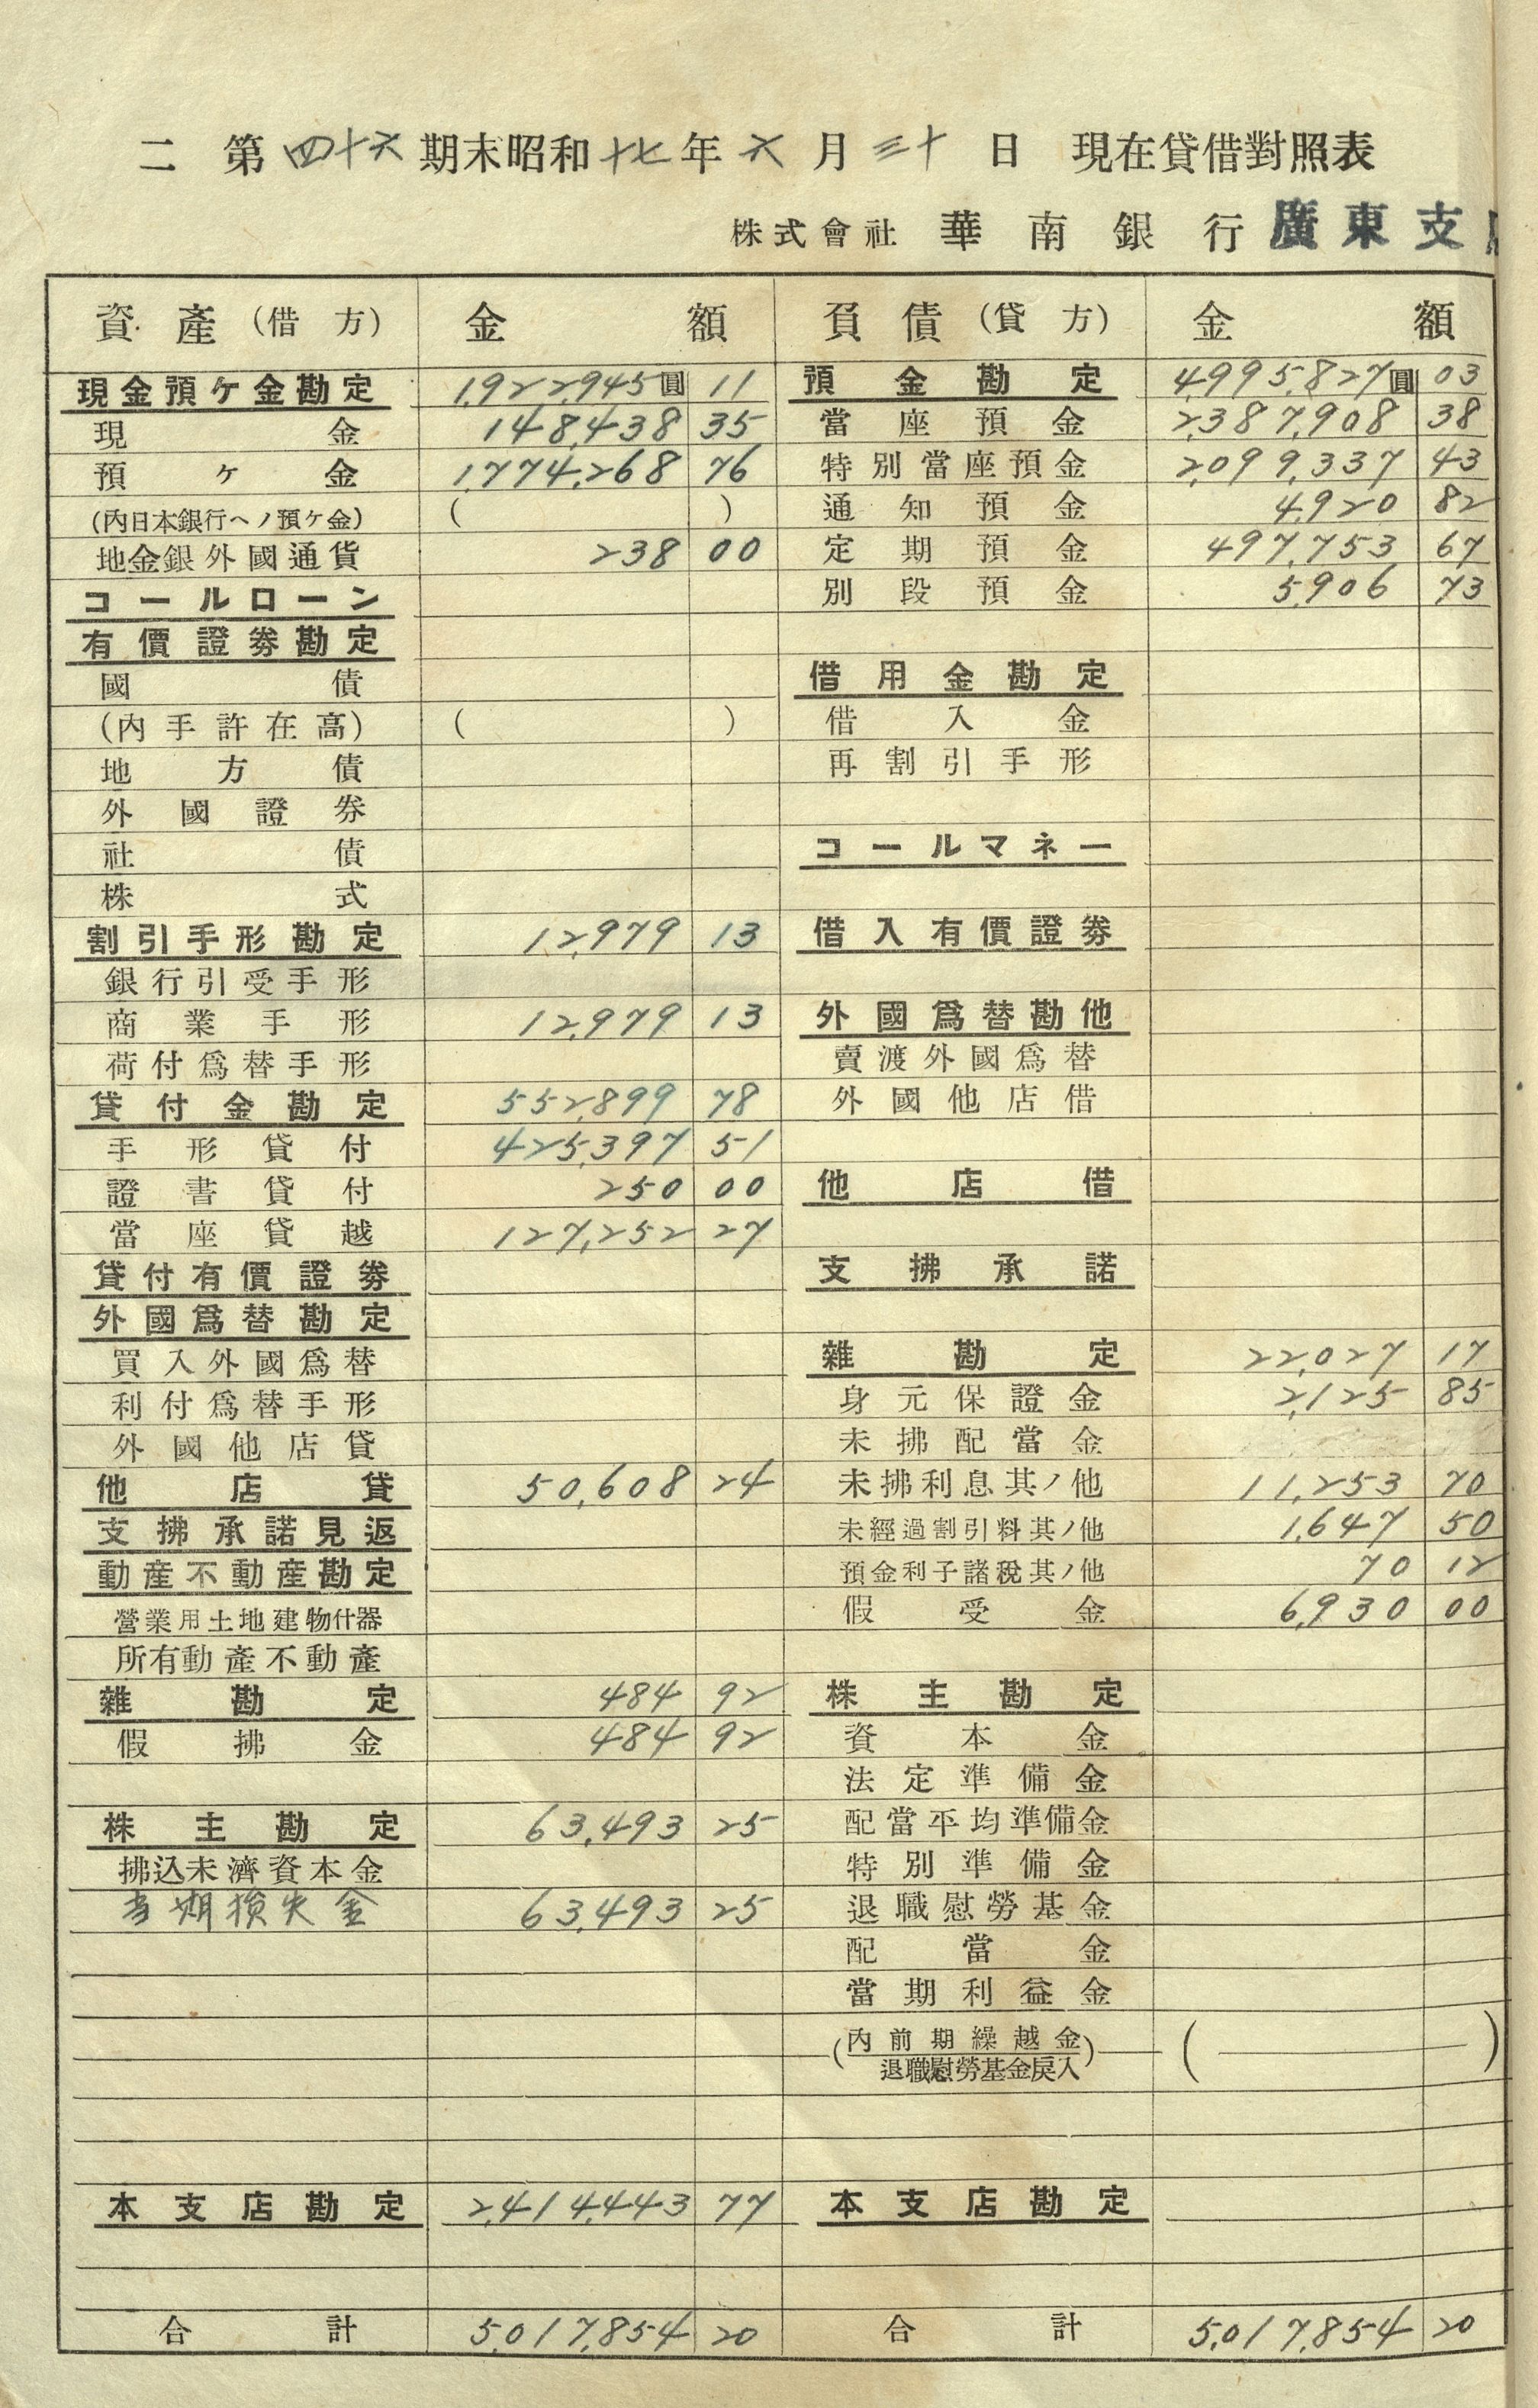 二 第四十六期末昭和十七年六月三十日 現在貸借對照表
株式會社 華南銀行 廣東支
資產(借方) 金額 負債(貸方) 金額
現金預ケ金勘定 1,922,945圓 11 預金勘定 4,995,827圓 03
現金 148,438 35 當座預金 2,387,908 38
預ケ金 1,774,268 76 特別當座預金 2,099,337 43
(內日本銀行ヘノ預ケ金) ( ) 通知預金 4,920 82
地金銀外國通貨 238 00 定期預金 497,753 67
コールローン 別段預金 5,906 73
有價證券勘定
國債 借用金勘定
(內手許在高) ( ) 借入金
地方債 再割引手形
外國證券
社債 コールマネー
株式
割引手形勘定 12,979 13 借入有價證券
銀行引受手形
商業手形 12,979 13 外國爲替勘他
荷付爲替手形 賣渡外國爲替
貸付金勘定 552,899 78 外國他店借
手形貸付 425,397 51
證書貸付 250 00 他店借
當座貸越 127,252 27
貸付有價證券 支拂承諾
外國爲替勘定
買入外國爲替 雜勘定 22,027 17
利付爲替手形 身元保證金 2,125 85
外國他店貸 未拂配當金
他店貸 50,608 24 未拂利息其ノ他 11,253 70
支拂承諾見返 未經過割引料其ノ他 1,647 50
動產不動產勘定 預金利子諸稅其ノ他 70 12
營業用土地建物什器 假受金 6,930 00
所有動產不動產
雜勘定 484 92 株主勘定
假拂金 484 92 資本金
法定準備金
株主勘定 63,493 25 配當平均準備金
拂込未濟資本金 特別準備金
当期損失金 63,493 25 退職慰勞基金
配當金
當期利益金
(內前期繰越金 ( )
退職慰勞基金戾入)
本支店勘定 2,414,443 77 本支店勘定
合計 5,017,854 20 合計 5,017,854 20